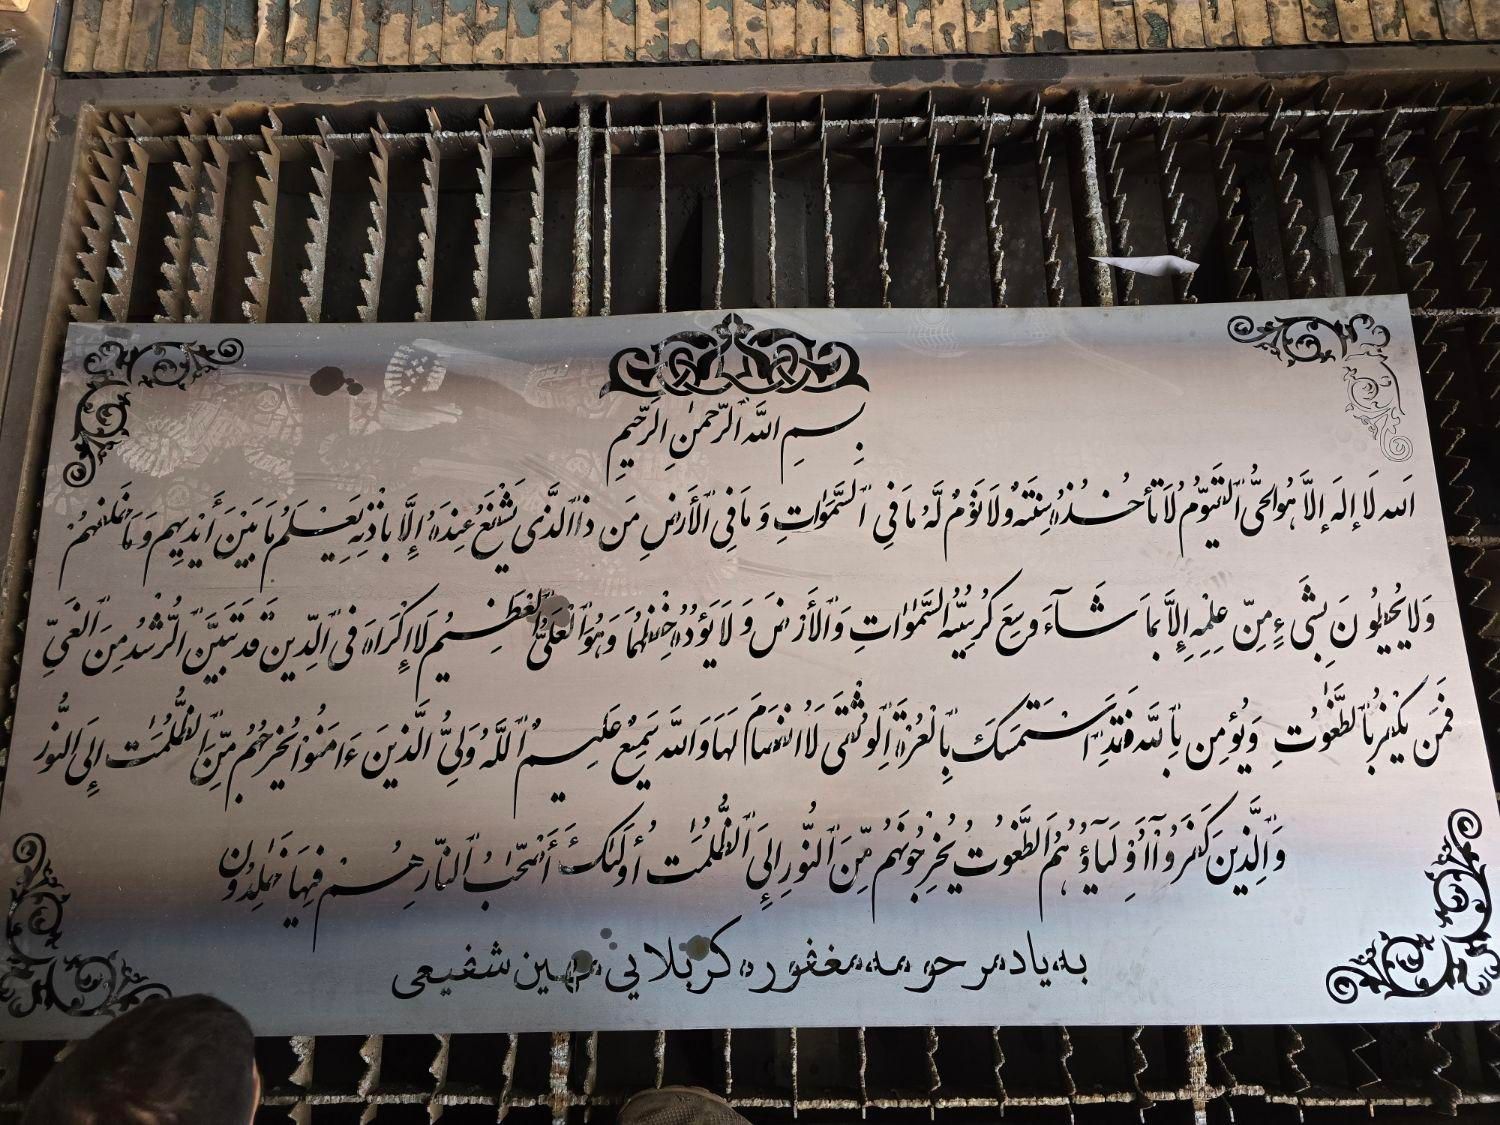 بِسمِ اللَّه الرَّحمنِ الرَّحیمِ
اَلله لَا إِلهَ إِلاَّ هُوَ الحَیُّ ٱلقَیّومُ لَا تَأخُذُهُ سِنَتَهٌ وَلَا نَوْمٌ لَّهُ مَا فِی ٱلسَّمَٰوَٰتِ وَ مَا فِی ٱلأَرْضِ مَن ذَا ٱلَّذِی یَشْفَعُ عِندَهُ إِلَّا بِإذْنِهِ یَعْلَمُ مَا بَیْنَ أَیْدِیهِم وَ مَا خَلْفَهُمْ
وَلَا یُحِیطُونَ بِشَیءٍ مِنّ عِلمِهِ إِلاَّ بِمَا شَآءَ وَسِعَ کُرسِیُّهُ السَّمَٰوَٰتِ وَٱلأَرْضَ وَلَا یَؤُدُهُ حِفْظُهُمَا وَهُوَ ٱلعَلِیُّ ٱلعَظِیمُ لَا إِکْرَاهَ فِی ٱلدِّینِ قَد تَبَیَّنَ ٱلرُّشدُ مِنَ ٱلغَیِّ
فَمَن یَکْفُر بِٱلطَّغُوتِ وَیُؤمِن بِٱللَّه فَقَدِ ٱسْتَمسَکَ بِٱلْعُرْوَةِ ٱلوُثْقَی لَا ٱنفِصَامَ لَهَا وَٱللَّه سَمِیعٌ عَلِیمٌ ٱللَّهُ وَلِیُّ الَّذِینَ ءَامَنُوا یُخرِجُهُم مِّنَ ٱلظُّلُمَٰتِ إِلَی النُّور
وَٱلَّذِینَ کَفَرُوٓا أَوْلِیَآؤُهُمُ ٱلطَّغُوتُ یُخرِجُونَهُم مِّنَ ٱلنُّورِ إِلَی ٱلظُّلُمَٰت أُوْلَئکَ أَصْحَٰبُ ٱلنَّارِ هُمْ فِیهَا خَٰلِدُونَ
به یاد مرحومه مغفوره کربلایی مهین شفیعی